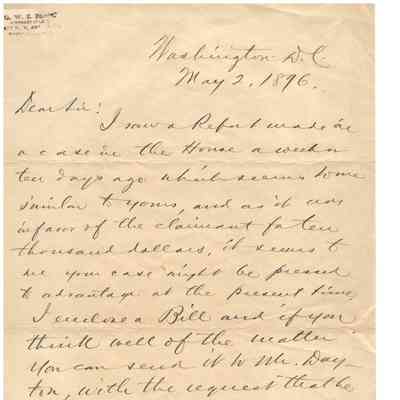 Washington D.C.
May 2, 1896.
Dear Sir:
I saw a Report made in
a case in the House a week or
ten days ago which seems some
similar to yours, and as it was
in favor of the claimant for ten
thousand dollars, it seems to
me your case might be pressed
to advantage at the present time,
I enclose a Bill and if you
think well of the matter
you can send it to Mr. Day-
ton, with the request that he